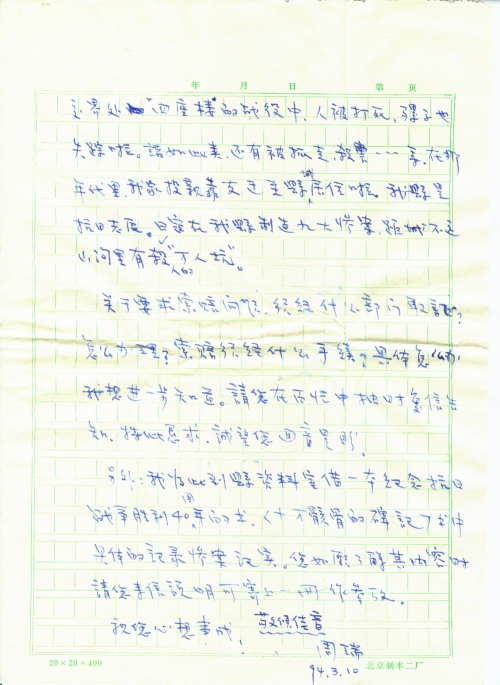 年 月 日 第 页
交界处"四座楼"的战役中,人被打死,骡子也
失踪啦。諸如此类,还有被抓走,殺害……等,在那
年代里我家投親靠友迁至縣城居住啦。我縣是
抗日老区。日寇在我縣制造九大惨案,距城不远
小河里有殺人的"万人坑"。
关于要求索賠问題,须经什么部门取証?
怎么办理?索賠须经什么手續?具体怎么办
我想进一步知道。請您在百忙中抽时复信告
知,特此恳求,诚望您回音是盼。
另外:我为此到縣资料室借一本纪念抗日
战争胜利40周年的书,《十万骸骨的碑記》书中
具体的記录惨案记实。您如愿了解其内容时
請您来信说明可寄上一册作参考。
祝您心想事成! 敬候佳音
周瑞
94.3.10
20×20=400 北京制本二厂